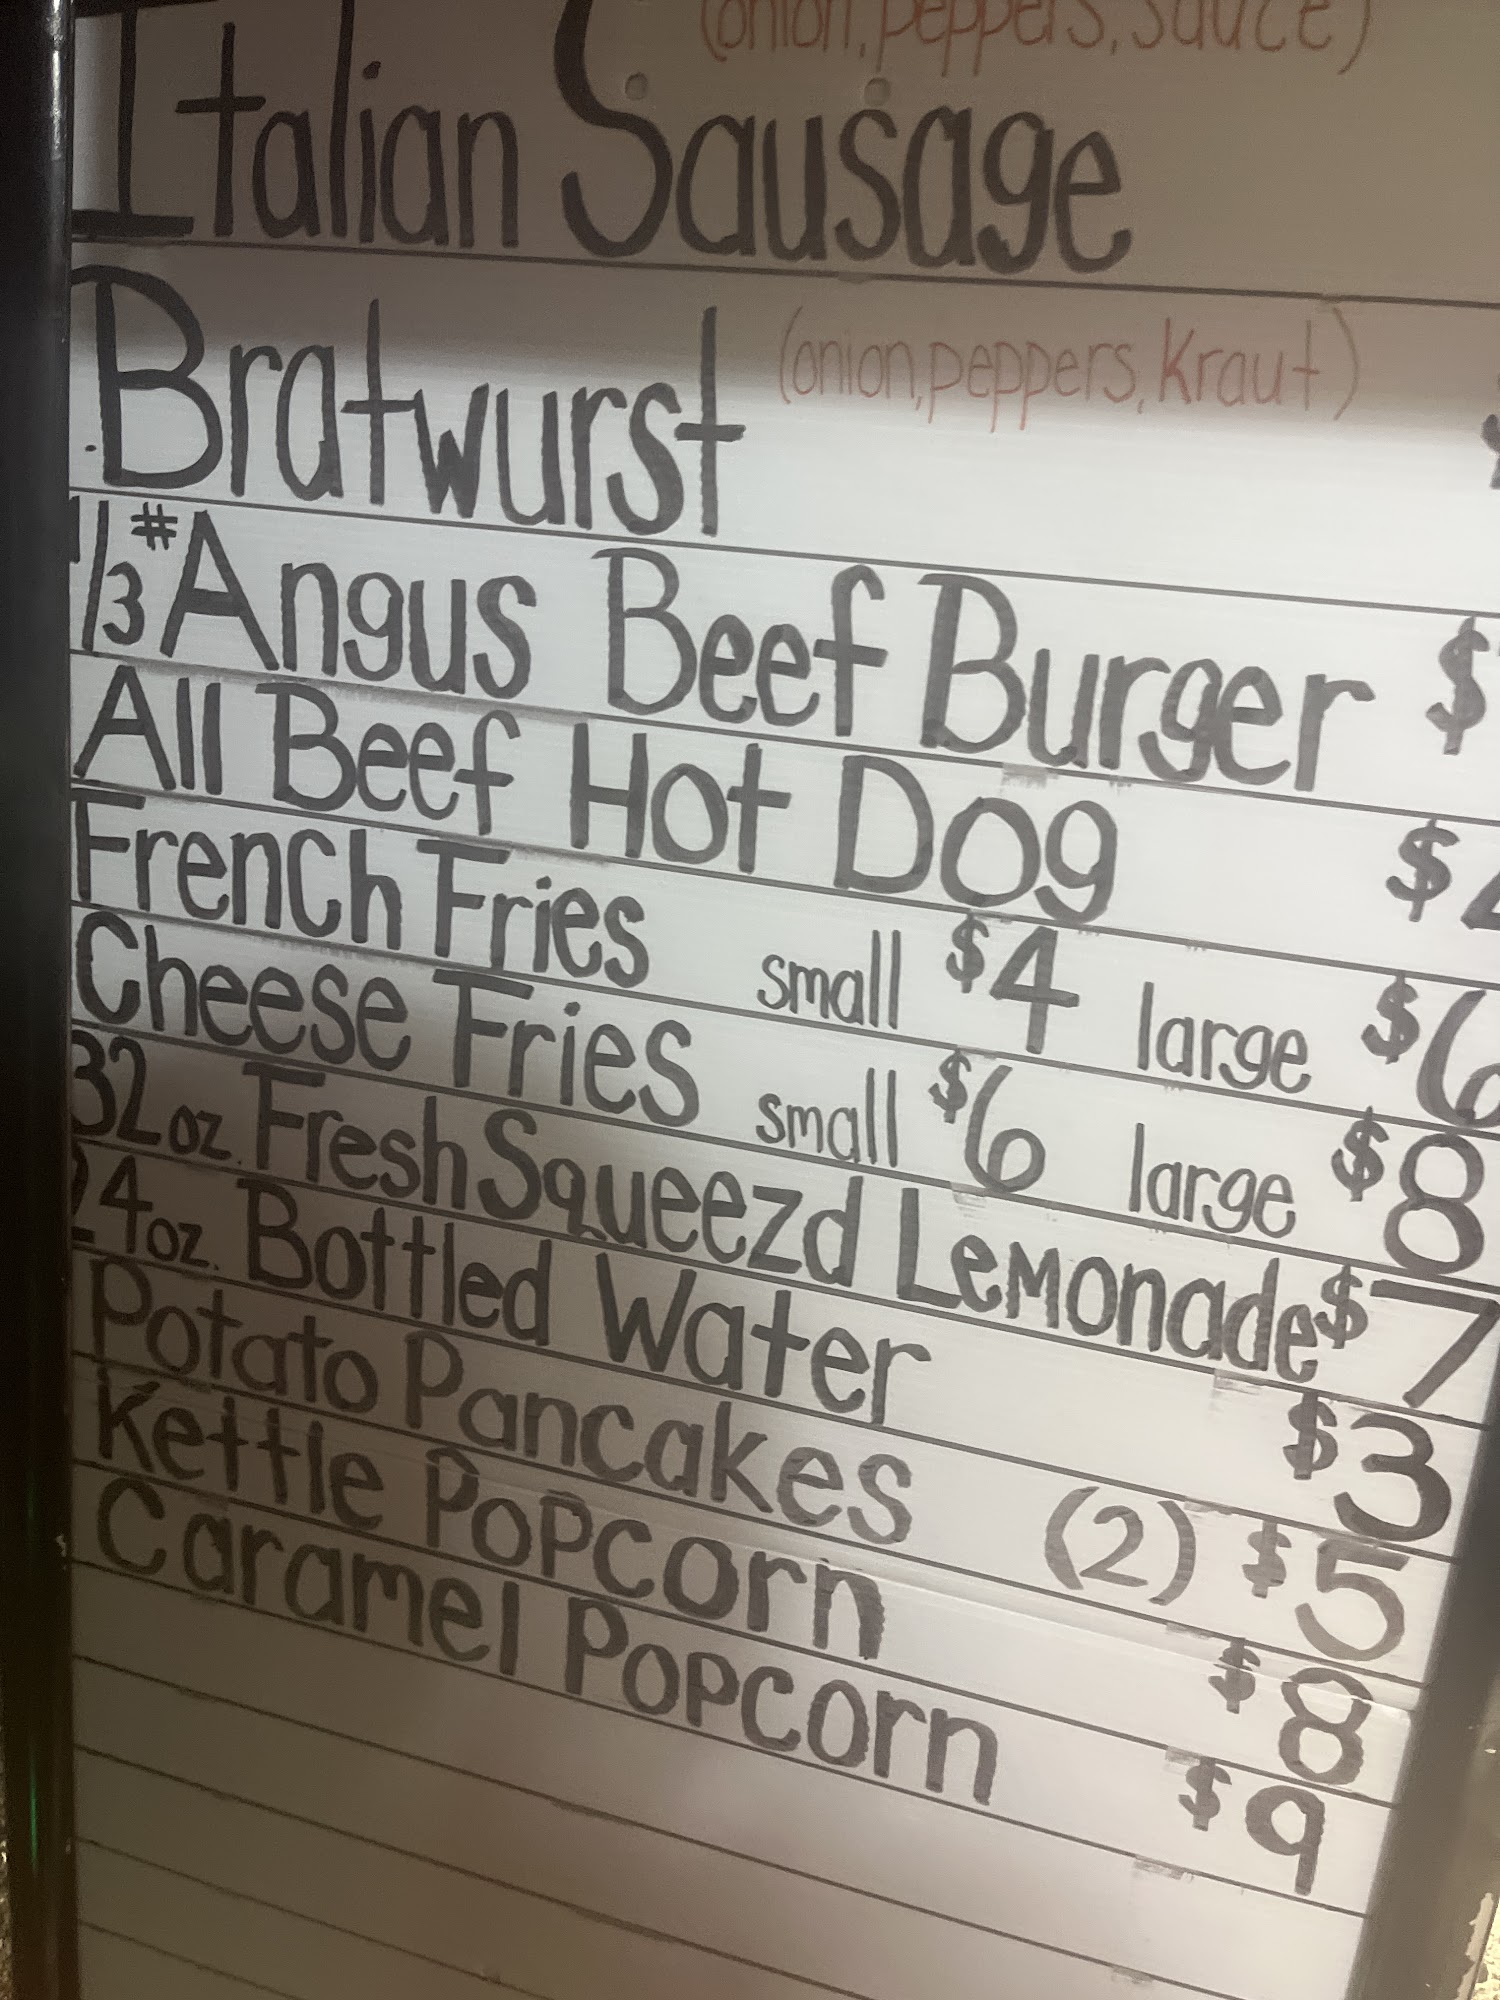 (onion, peppers, sauce)
Italian Sausage
Bratwurst (onion, peppers, Kraut)
1/3# Angus Beef Burger $
All Beef Hot Dog $
French Fries small $4 large $6
Cheese Fries small $6 large $8
32oz. Fresh Squeezd Lemonade $7
24oz. Bottled Water $3
Potato Pancakes (2) $5
Kettle Popcorn $8
Caramel Popcorn $9